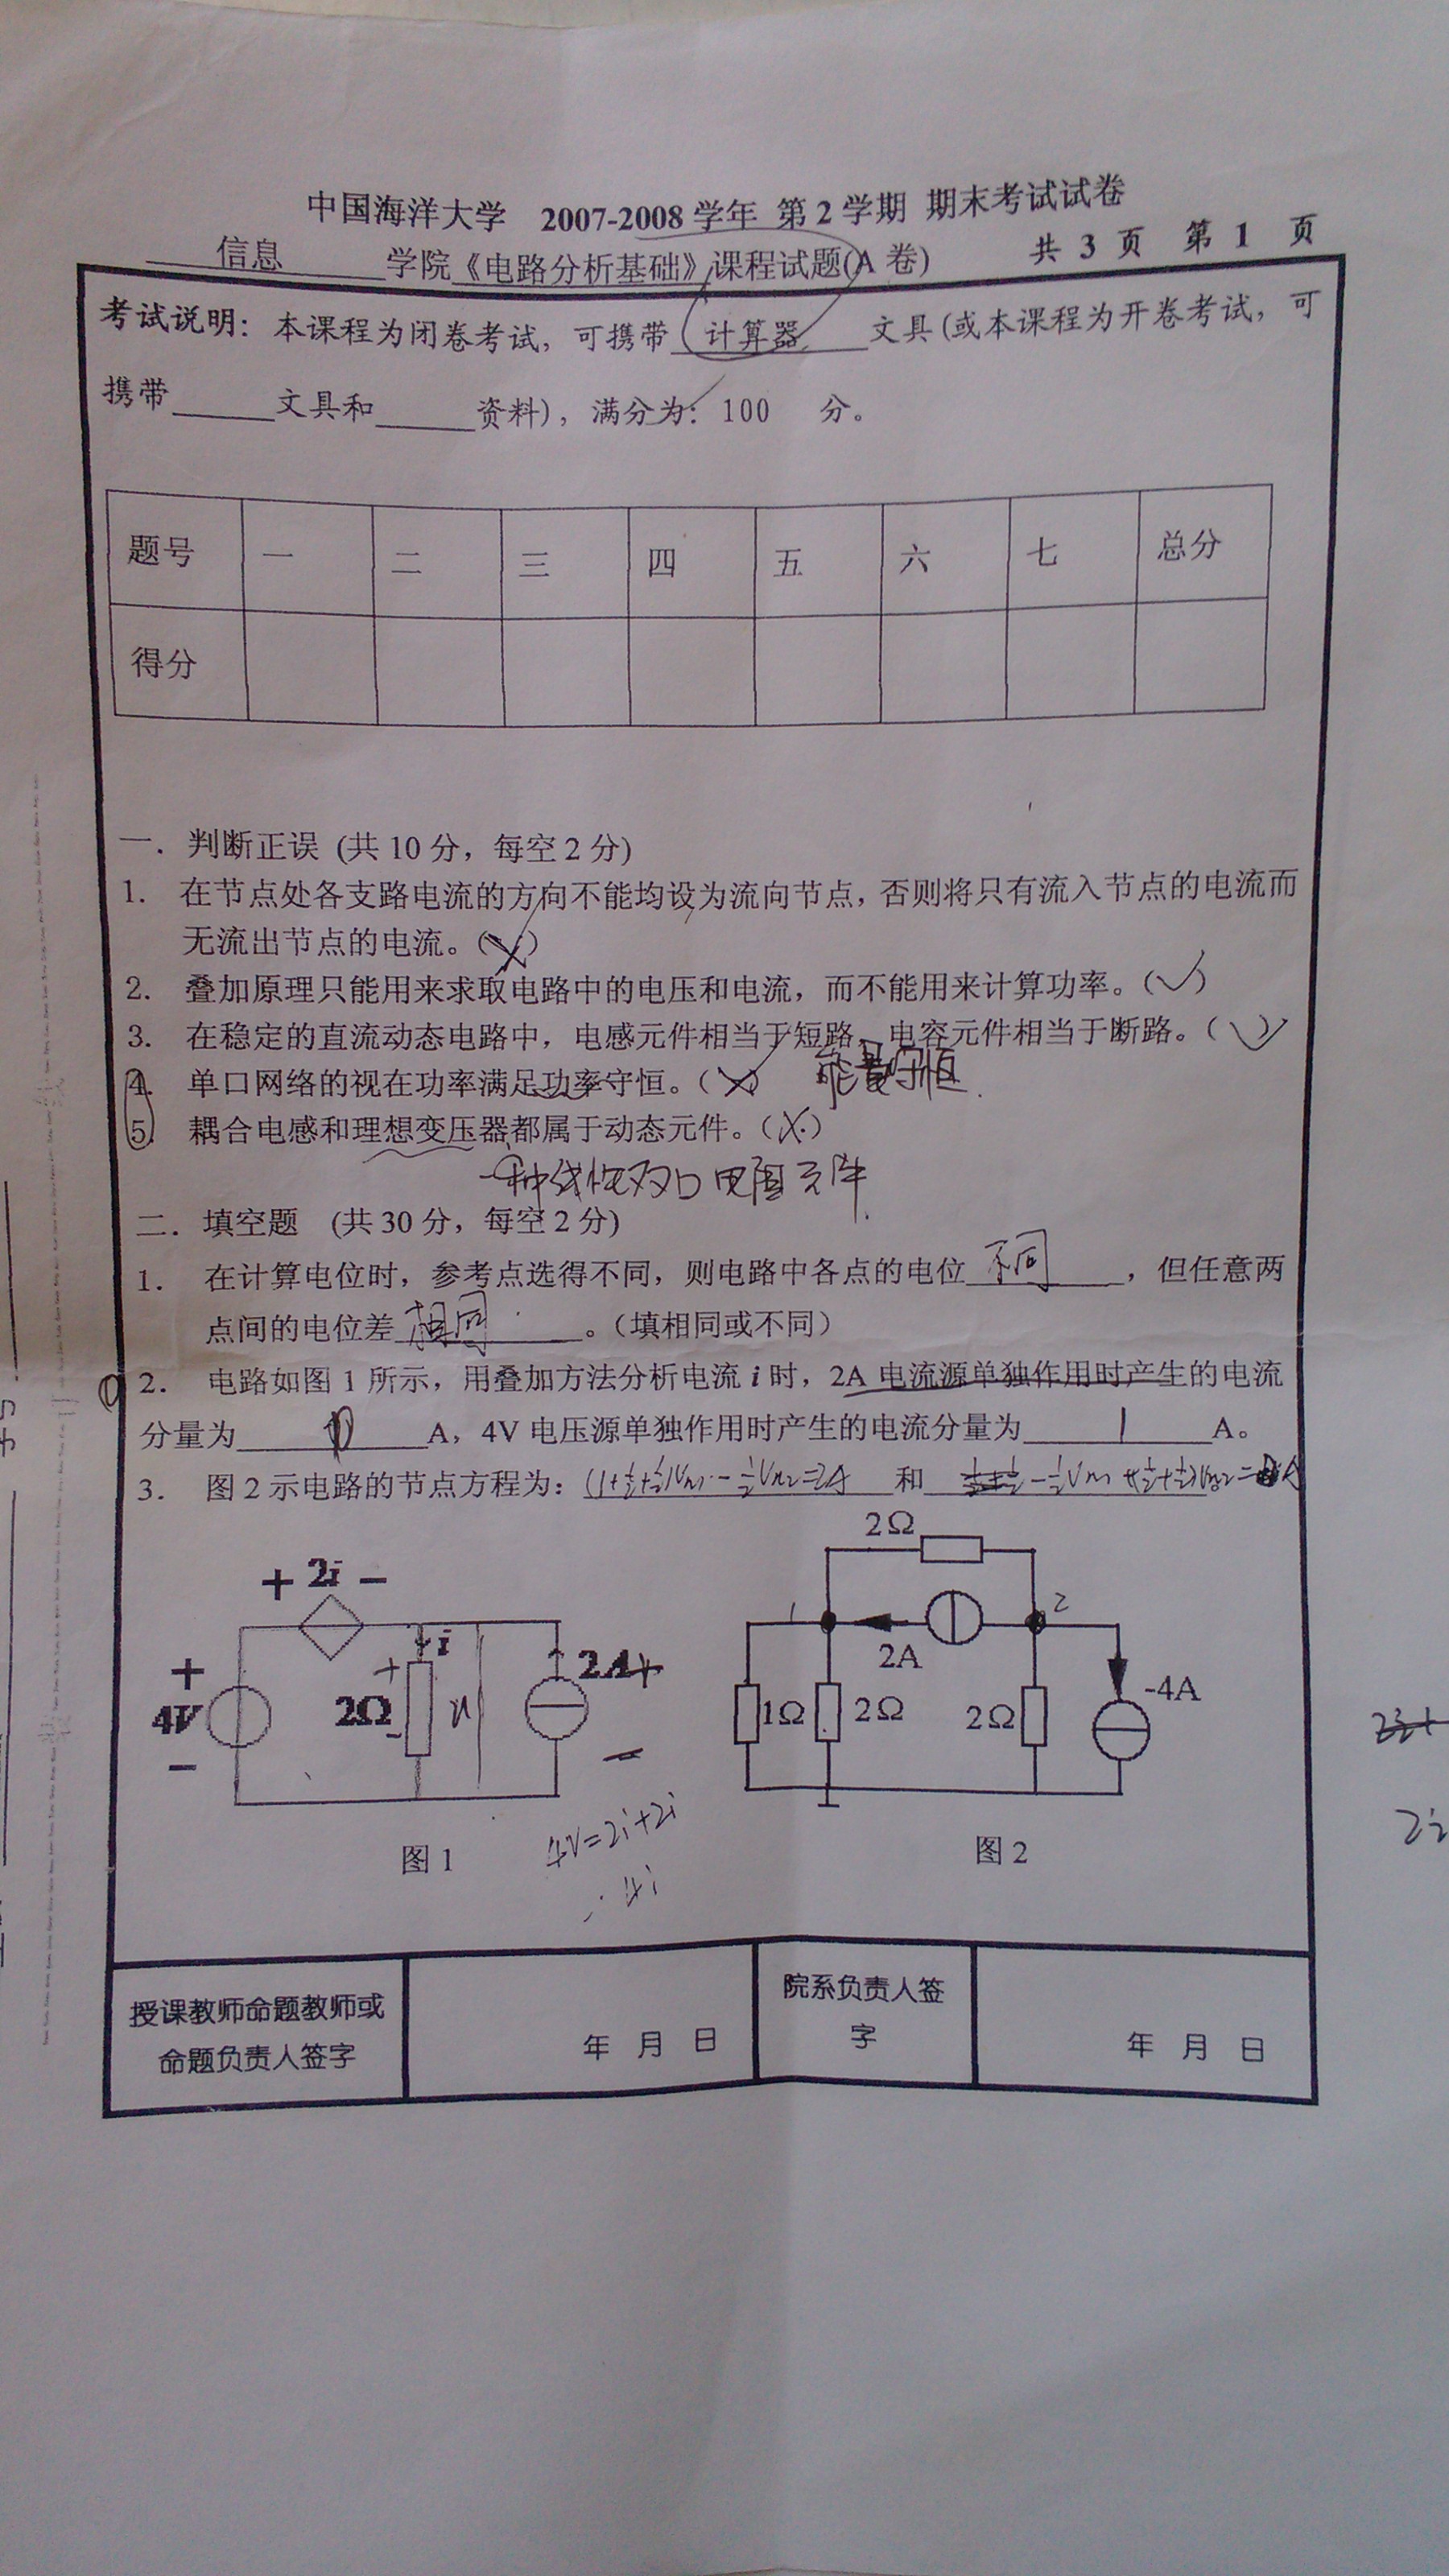 中国海洋大学 2007-2008 学年 第 2 学期 期末考试试卷
信息 学院《电路分析基础》课程试题(A 卷) 共 3 页 第 1 页
考试说明：本课程为闭卷考试，可携带 计算器 文具(或本课程为开卷考试，可
携带 文具和 资料)，满分为：100 分。
题号 一 二 三 四 五 六 七 总分
得分
一．判断正误 (共 10 分，每空 2 分)
1. 在节点处各支路电流的方向不能均设为流向节点，否则将只有流入节点的电流而
无流出节点的电流。(×)
2. 叠加原理只能用来求取电路中的电压和电流，而不能用来计算功率。(✓)
3. 在稳定的直流动态电路中，电感元件相当于短路，电容元件相当于断路。(✓)
4. 单口网络的视在功率满足功率守恒。(×) 能量守恒.
5. 耦合电感和理想变压器都属于动态元件。(×)
一种线性双口电阻元件.
二．填空题 (共 30 分，每空 2 分)
1. 在计算电位时，参考点选得不同，则电路中各点的电位 不同 ，但任意两
点间的电位差 相同 。（填相同或不同）
2. 电路如图 1 所示，用叠加方法分析电流 i 时，2A 电流源单独作用时产生的电流
分量为 0 A，4V 电压源单独作用时产生的电流分量为 1 A。
3. 图 2 示电路的节点方程为：(1+½+½)Vn1-½Vn2=2A 和 -½Vn1+(½+½)Vn2=
2Ω
+ 2i −
1 2
i
2A
+ 4V −
+ 2Ω - u
2A +
−
1Ω 2Ω 2Ω -4A
4V=2i+2i
4i
图 1 图 2
2i
授课教师命题教师或
命题负责人签字
年 月 日
院系负责人签
字
年 月 日